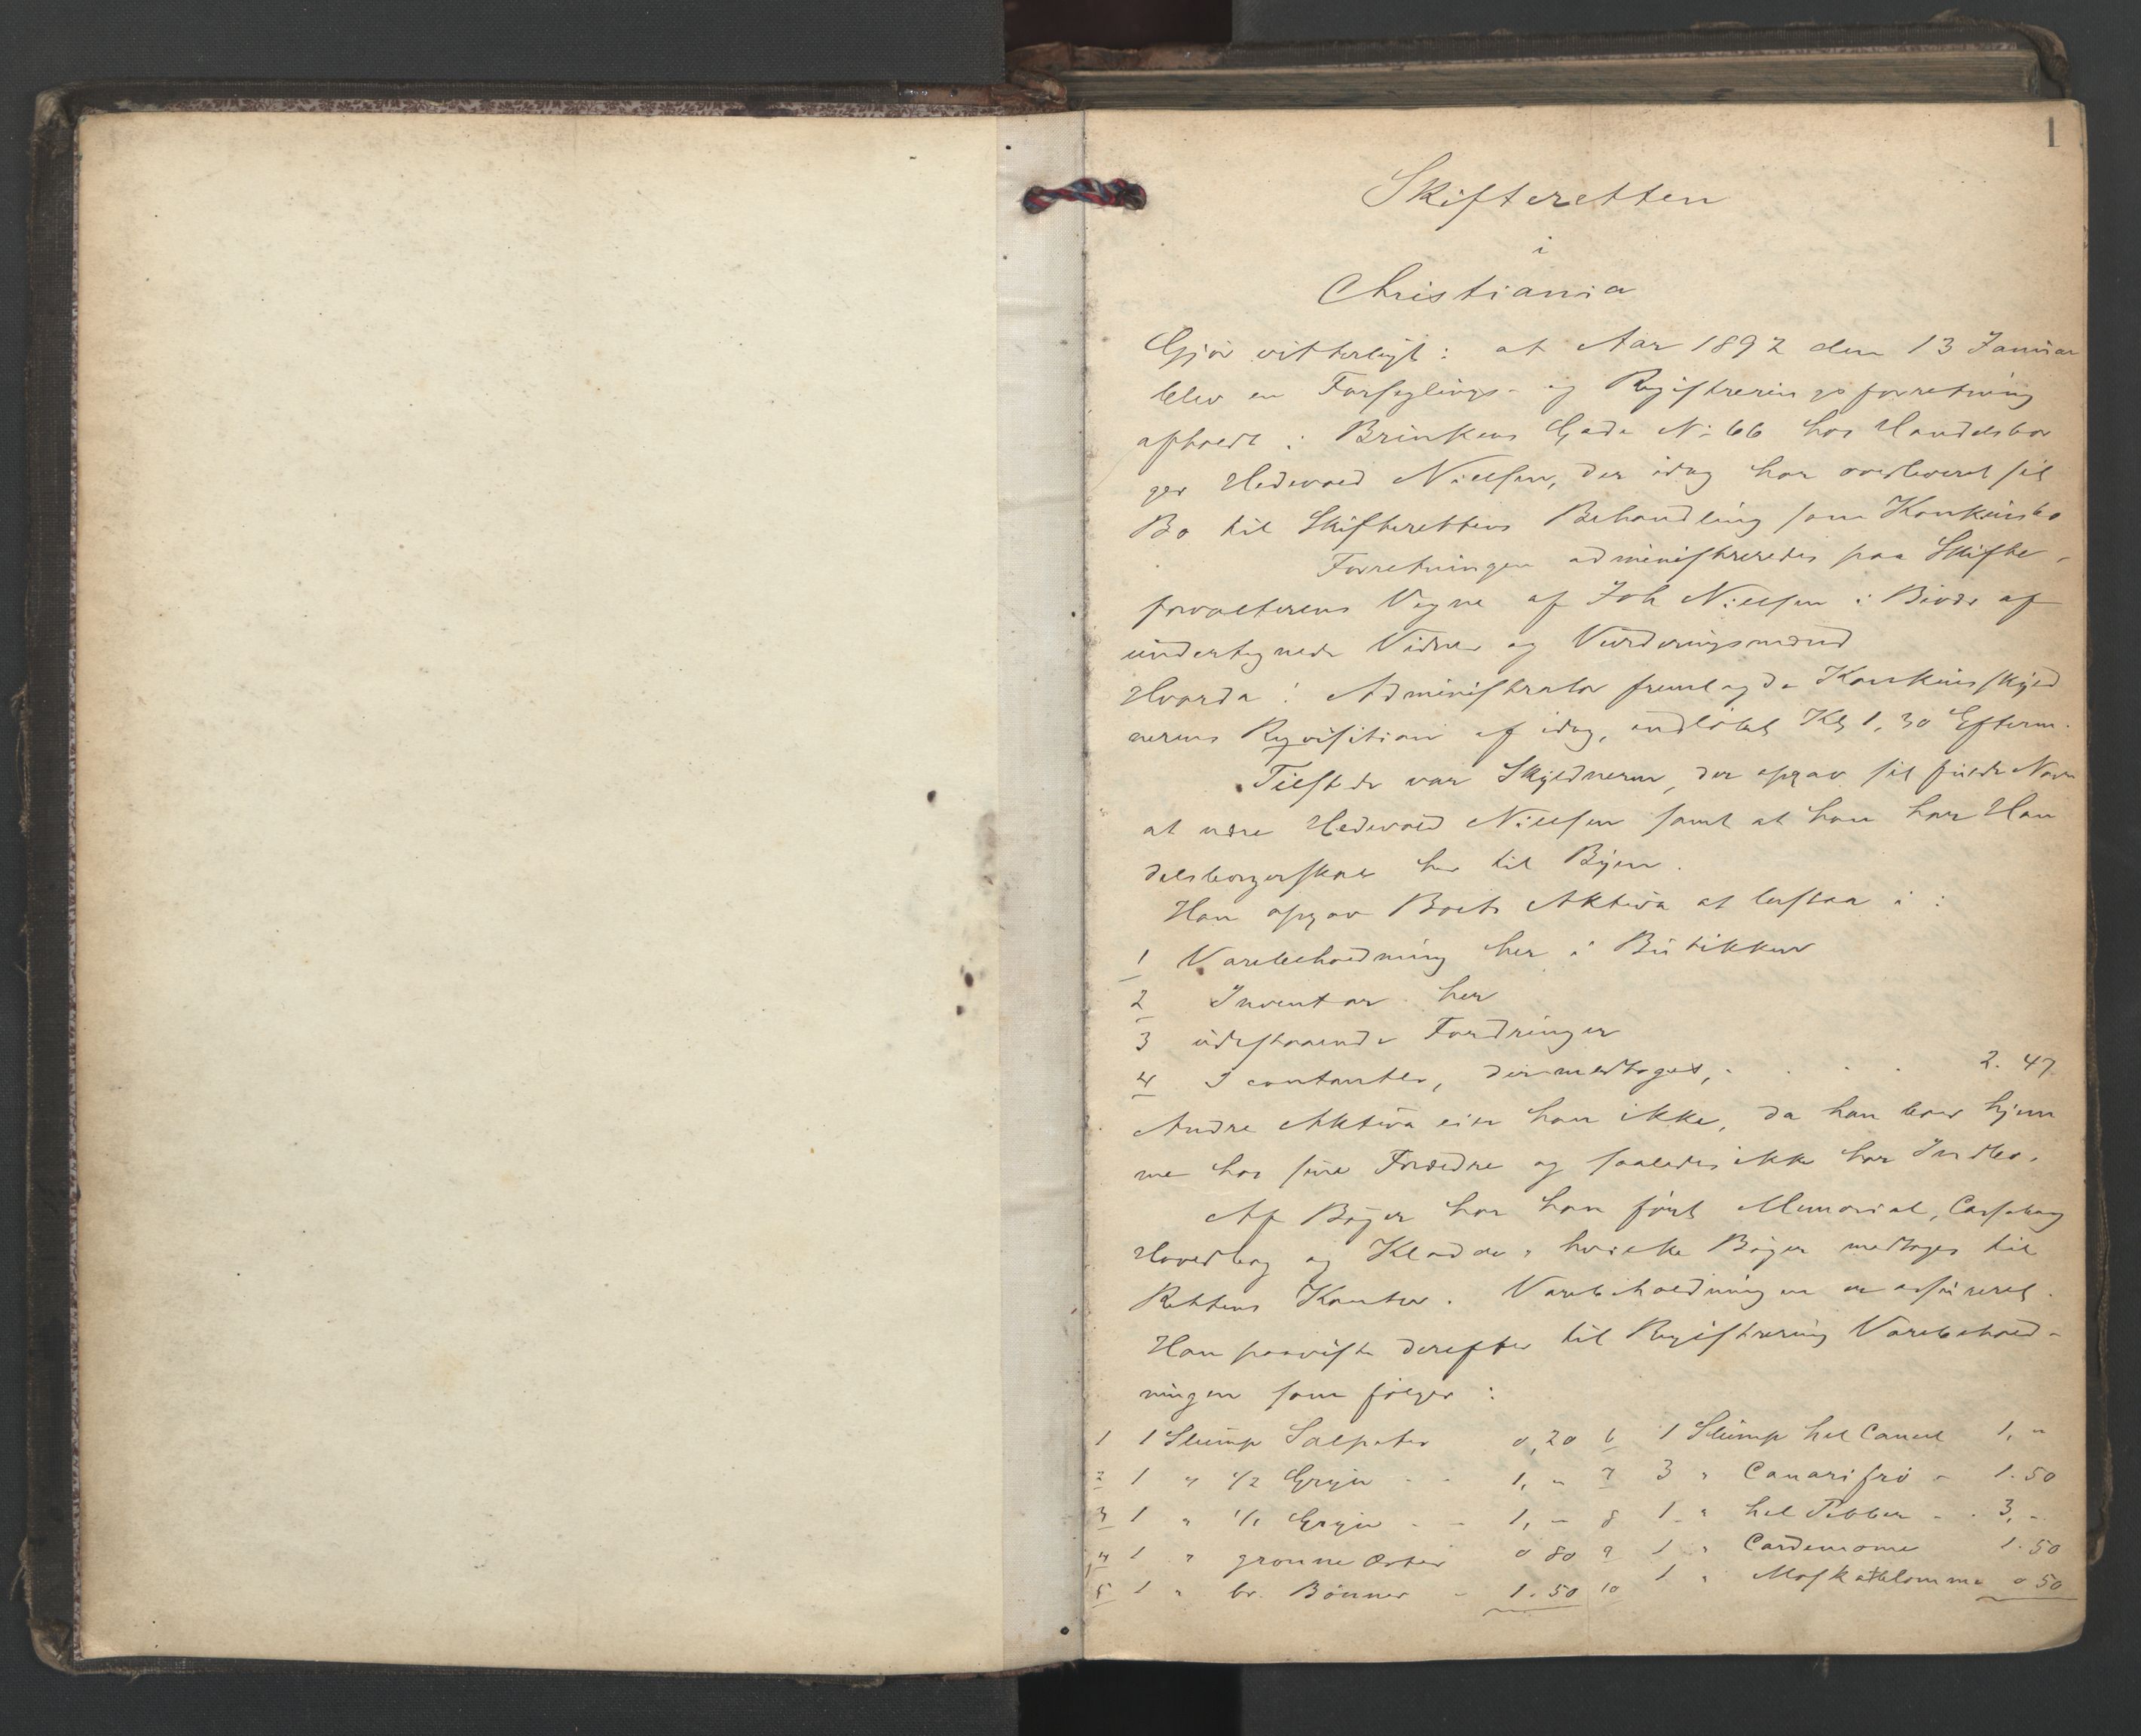 1
Skifteretten
i
Christiania
Gjör vitterligt: at Aar 1892 den 13 Januar
blev en Forseglings- og Registreringsforretning
afholdt i Brinkens Gade No 66 hos Handelsbor
ger Hedevald Nielsen, der idag har overleveret sit
Bo til Skifterettens Behandling som Konkursbo
Forretningen administreredes paa Skifte-
forvalterens Vegne af Joh Nielsen i Bivær af
undertegnede Vidner og Vurderingsmænd
Hvorda! Administrator fremlagde Konkursskyld
nerens Rqvisition af idag, indlöbet Kl 1,30 Efterm.
Tilstede var Skyldneren, der opgav sit fulde Navn
at være Hedevald Nielsen samt at han har Han
delsborgerskab her til Byen.
Han opgav Boets Aktiva at bestaa i:
1 Varebeholdning her i Butikken
2 Inventar her
3 udestaaende Fordringer
4 I contanter, der medtoges, . . . . 2.47
Andre Aktiva eier han ikke, da han bor hjem
me hos sine Forældre og saaledes ikke har Indbo.
Af Böger har han fört Memorial, Cassabog
Hovedbog og Kladde, hvilke Böger medtoges til
Rettens Kontor. Varebeholdningen er assureret.
Han paaviste derefter til Registrering Varebehold-
ningen som fölger:
1 1 Slump Salpeter 0,20 6 1 Slump hel Canel 1, "
2 1 " 1/2 Gryn - - 1, " 7 3 " Canarifrö - 1.50
3 1 " 1/1 Gryn - - 1, - 8 1 " hel Pebber - - 3, -
4 1 " grønne Erter 0 80 9 1 " Cardemome 1.50
5 1 " br. Bönner - 1.50 10 1 " Moskatblomme 0 50